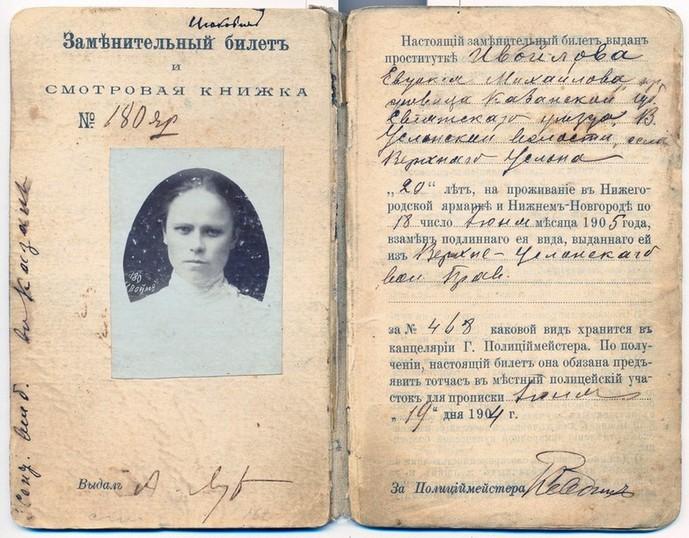 Замѣнительный билетъ
и
СМОТРОВАЯ КНИЖКА
№ 180 яр
180
Выдалъ А.
Казань
Настоящій замѣнительный билетъ выданъ
проституткѣ Ивойлова
Евдокія Михайлова
Казанской
уѣзда, В.
Услонской волости, села
Верхняго Услона
„20“ лѣтъ, на проживаніе въ Нижего-
родской ярмаркѣ и Нижнемъ-Новгородѣ по
18 число іюня мѣсяца 1905 года,
взамѣнъ подлиннаго ея вида, выданнаго ей
изъ Верхне-Услонскаго
вол. Прав.
за № 468 каковой видъ хранится въ
канцеляріи Г. Полиційместера. По полу-
ченіи, настоящій билетъ она обязана предъ-
явить тотчасъ въ мѣстный полицейскій уча-
стокъ для прописки іюня
„19“ дня 1904 г.
За Полиційместера